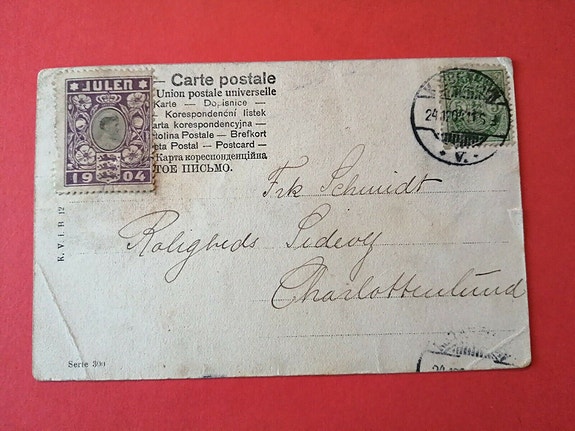 JULEN
1904
— Carte postale
Union postale universelle
Karte — Dopisnice —
— Korespondenční listek
arta korespondencyjna —
tolina Postale — Brefkort
eta Postal — Postcard —
Карта кореспонденційна
ТОЕ ПИСЬМО.
24.12.04.11
V.
Frk Schmidt
Roligheds Sidevej
Charlottenlund
K. V. i. B. 12
Serie 300